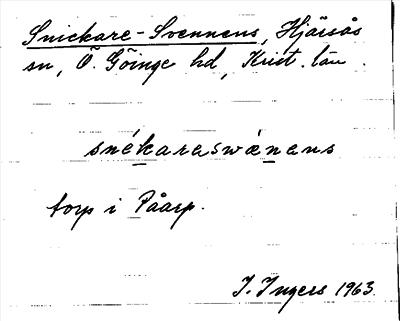 Snickare-Svennens, Hjärsås
sn, Ö. Göinge hd, Krist. län.
snékareswænens
torp i Påarp.
I. Ingers 1963.